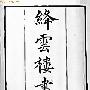 絳雲樓書